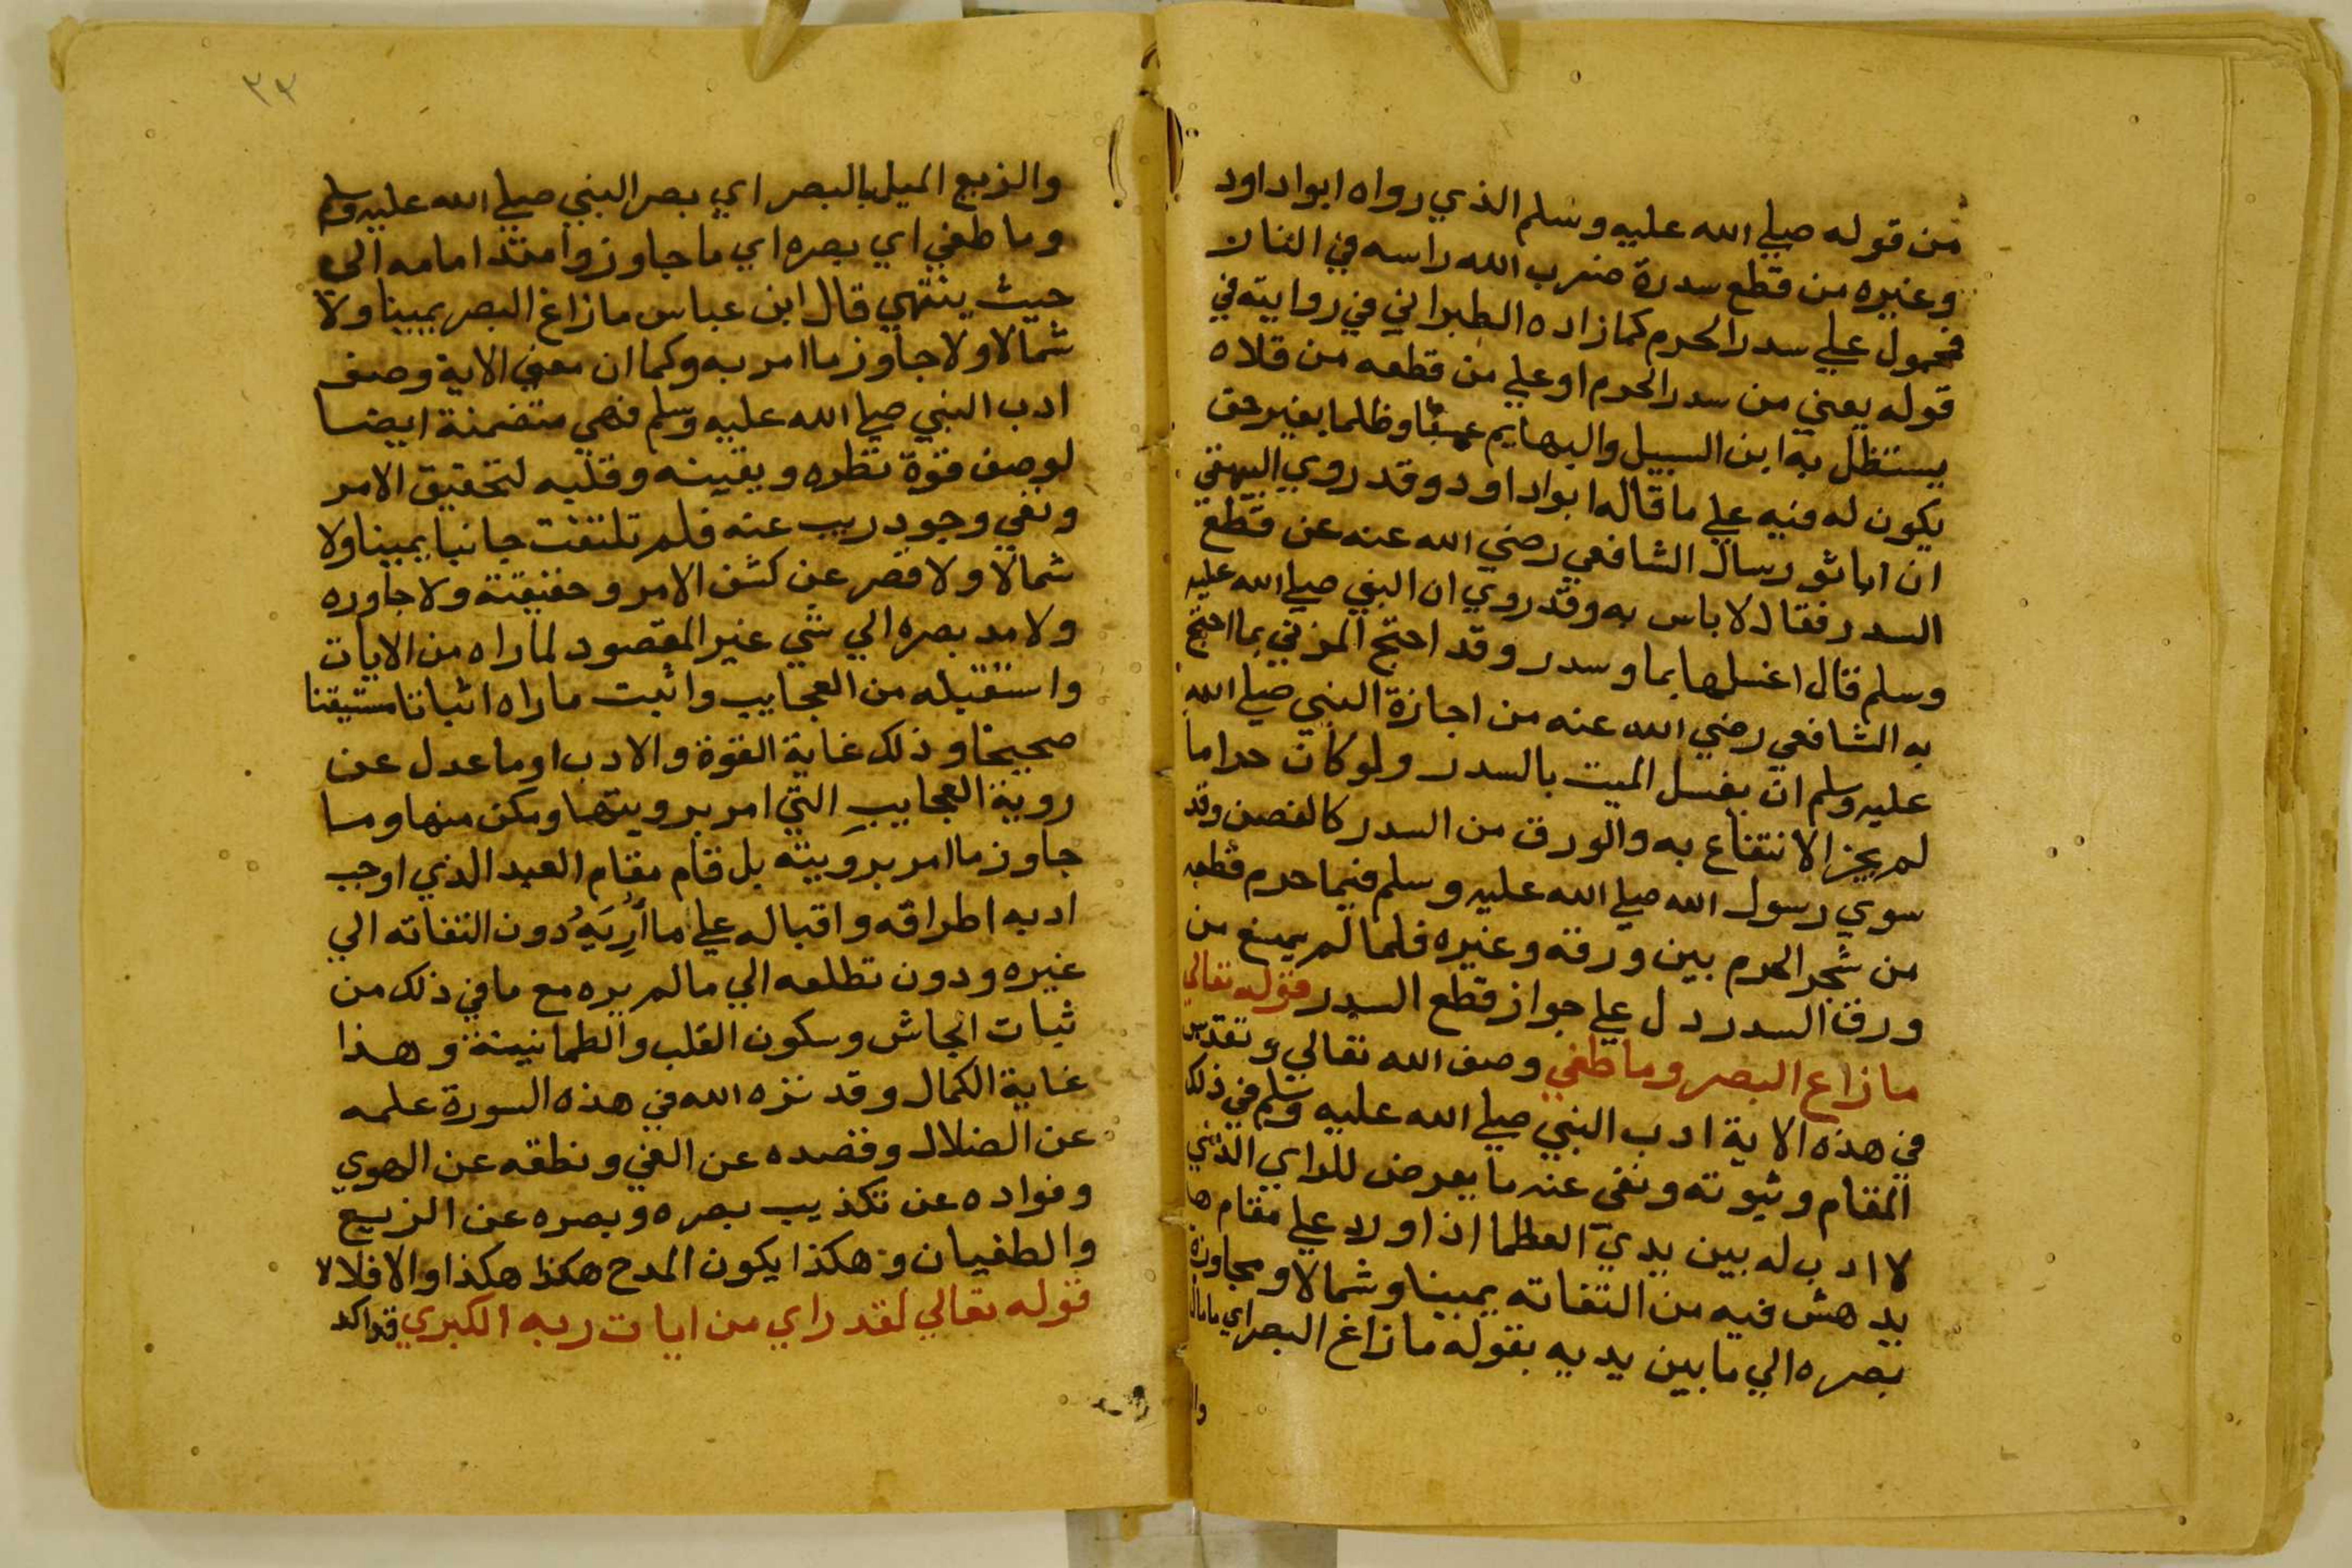 من قوله صلي الله عليه وسلم الذي رواه ابواداود
وغيره من قطع سدرة ضرب الله راسه في النار
فمحمول علي سدر الحرم كما زاده الطبراني في روايته في
قوله يعني من سدر الحرم او علي من قطعه من فلاه
يستظل به ابن السبيل والبهايم عبثا وظلما بغير حق
يكون له فيه علي ما قاله ابواداود وقد روي البيهقي
ان اباثور سال الشافعي رضي الله عنه عن قطع
السدر فقال لاباس به وقد روي ان النبي صلي الله عليه
وسلم قال اغسلها بما وسدر وقد احتج المزني بما احتج
به الشافعي رضي الله عنه من اجازة النبي صلي الله
عليه وسلم ان يغسل الميت بالسدر ولو كان حراما
لم يجز الانتفاع به والورق من السدر كالغصن وقد
سوي رسول الله صلي الله عليه وسلم فيما حرم قطعه
من شجر الحرم بين ورقه وغيره فلما لم يمنع من
ورق السدر دل علي جواز قطع السدر قوله تعالي
ما زاغ البصر وما طغي وصف الله تعالي وتقدس
في هذه الاية ادب النبي صلي الله عليه وسلم في ذلك
المقام وثبوته ونفى عنه ما يعرض للراي الذي
لا ادب له بين يدي العظما اذا ورد علي مقام
يدهش فيه من التفاته يمينا وشمالا ومجاوزة
بصره الي ما بين يديه بقوله ما زاغ البصر اي ما مال
وا
٣٢
والزيع الميل بالبصر اي بصر النبي صلي الله عليه وسلم
وما طغي اي بصره اي ما جاوز وامتد امامه الى
حيث ينتهي قال ابن عباس ما زاغ البصر يمينا ولا
شمالا ولا جاوز ما امر به وكما ان معني الاية وصف
ادب النبي صلي الله عليه وسلم فهي متضمنة ايضا
لوصف قوة نظره ويقينه وقلبه لتحقيق الامر
ونفي وجود ريب عنه فلم تلتفت جانبا يمينا ولا
شمالا ولا قصر عن كشف الامر وحقيقته ولا جاوره
ولا مد بصره الي شي غير المقصود لما راه من الايات
واستقبله من العجايب واثبت ماراه اثباتا مستيقنا
صحيحا وذلك غاية القوة والادب او ما عدل عن
روية العجايب التي امر برويتها ومكن منها وما
جاوز ما امر برويته بل قام مقام العبد الذي اوجب
ادبه اطراقه واقباله علي ما اُرِيَهُ دون التفاته الي
غيره ودون تطلعه الي مالم يره مع ما في ذلك من
ثبات الجاش وسكون القلب والطمانينة وهذا
غاية الكمال وقد نزه الله في هذه السورة علمه
عن الضلال وقصده عن الغي ونطقه عن الهوي
وفواده عن تكذيب بصره وبصره عن الزيع
والطغيان وهكذا يكون المدح هكذا هكذا والا فلا لا
قوله تعالي لقد راي من ايات ربه الكبري قد اكد